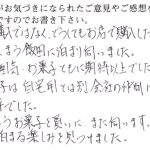 がお気づきになられたご意見やご感想を
ですのでお書き下さい。
購入ではなく、でっしもお店で購入した
まう飯田に泊まり伺いました。
お菓子ともに期待以上でした
子は自宅用では別会社の仲間に
。
うお菓子を買いに また伺います。
泊まる楽しみを見つけました。